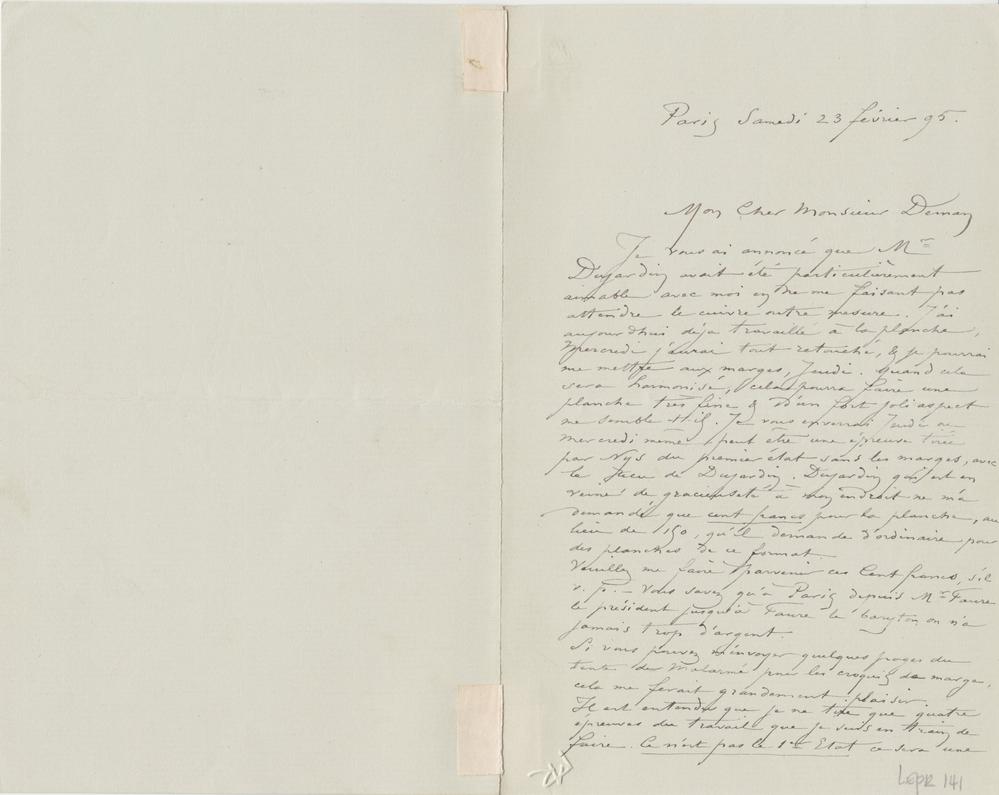 Paris Samedi 23 février 95.
Mon Cher Monsieur Deman
Je vous ai annoncé que Mr
Dujardin avait été particulièrement
aimable avec moi en ne me faisant pas
attendre le cuivre outre mesure. J'ai
aujourdhui déja travaillé à la planche,
Mercredi j'aurai tout retouché, & je pourrai
me mettre aux marges, Jeudi. Quand cela
sera harmonisé, cela pourra faire une
planche très fine & d'un fort joli aspect
me semble-t-il. Je vous enverrai Jeudi ou
mercredi même peut être une épreuve tirée
par Nys du premier état sans les marges, avec
le de Dujardin. Dujardin qui est en
veine de gracieuseté à mon endroit ne m'a
demandé que cent francs pour la planche, au
lieu de 150, qu'il demande d'ordinaire pour
des planches de ce format.
Veuillez me faire parvenir ces Cent francs, s'il
v. p. – Vous savez qu'à Paris depuis Mr Faure
le président jusqu'à Faure le baryton on n'a
jamais trop d'argent.
Si vous pouvez m'envoyer quelques pages du
texte du Malarmé pour les croquis de marge,
cela me ferait grandement plaisir.
Il est entendu que je ne tire que quatre
épreuves du travail que je suis en train de
faire. Ce n'est pas le 1er Etat ce sera une
LEPR 141